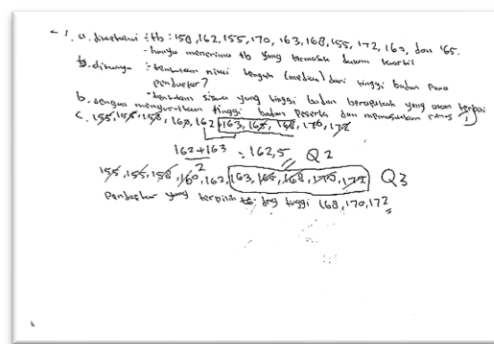 1. a. diketahui : tb : 158, 162, 155, 170, 163, 168, 155, 172, 160, dan 165.
- hanya menerima tb yang termasuk dalam kuartil
b. ditanya : - tentukan nilai tengah (median) dari tinggi badan para pendaftar?
- tentukan siswa yang tinggi badan berapakah yang akan terpilih
b. dengan mengurutkan tinggi badan peserta dan memasukkan rumus
c. 155, 155, 158, 160, 162, 163, 165, 168, 170, 172
162 + 163 = 162,5 Q2
2
155, 155, 158, 160, 162, 163, 165, 168, 170, 172 Q3
Pendaftar yang terpilih dng tinggi 168, 170, 172